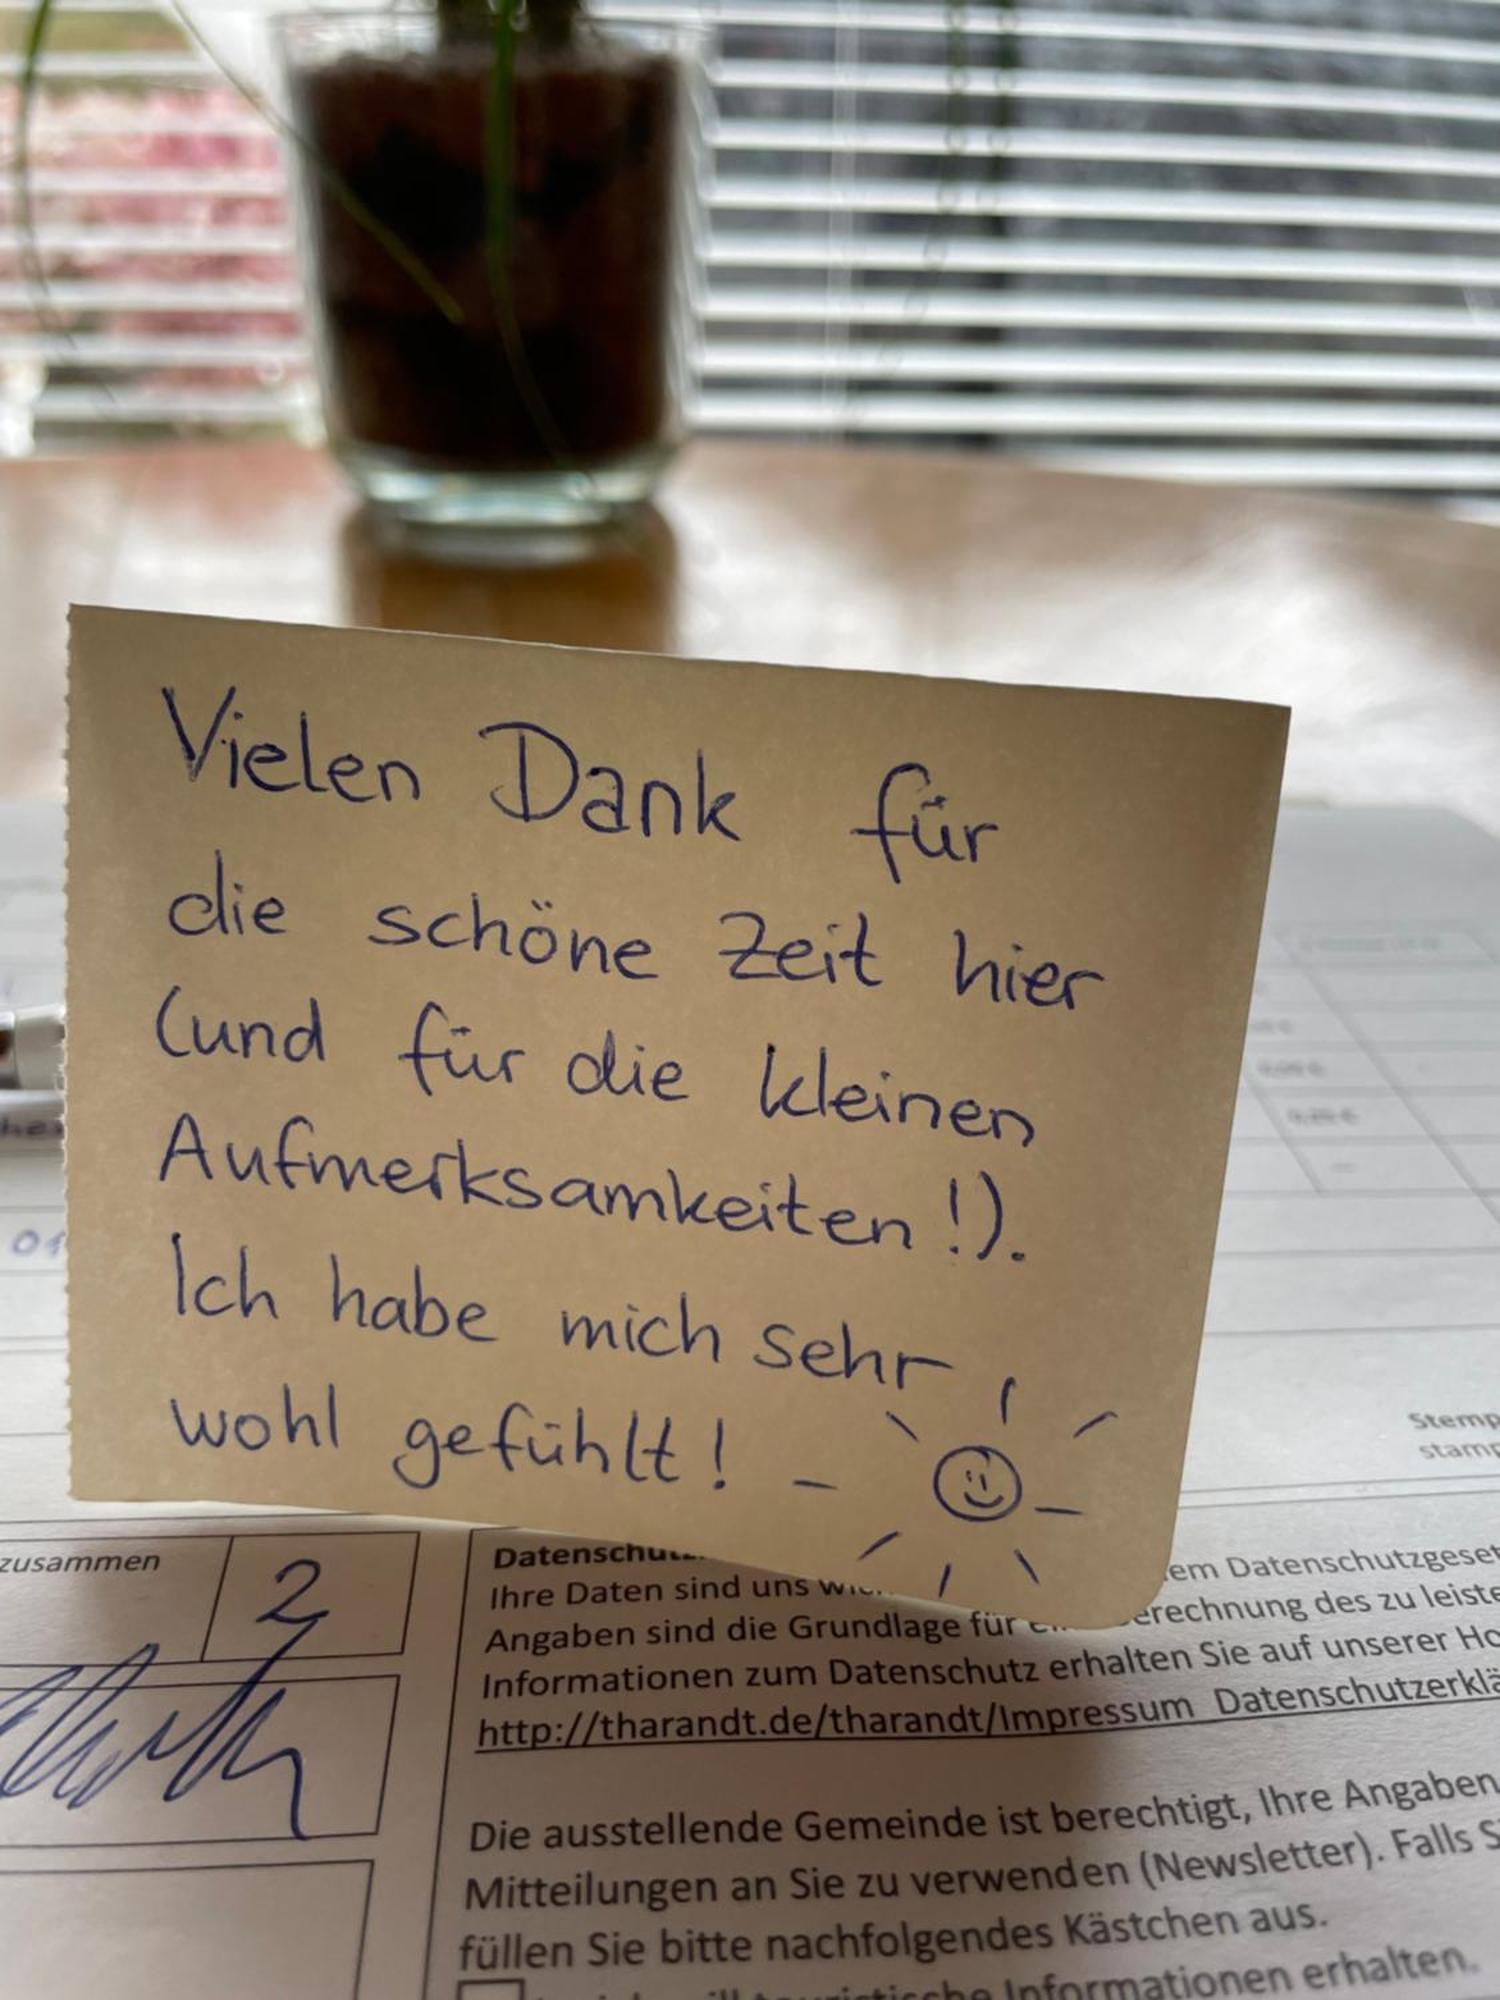 Vielen Dank für
die schöne Zeit hier
(und für die kleinen
Aufmerksamkeiten!).
Ich habe mich sehr
wohl gefühlt!
01
Stemp
stamp
zusammen
2
Datenschutz
Ihre Daten sind uns em Datenschutzgeset
Angaben sind die Grundlage für erechnung des zu leiste
Informationen zum Datenschutz erhalten Sie auf unserer Ho
http://tharandt.de/tharandt/Impressum_Datenschutzerklä
Die ausstellende Gemeinde ist berechtigt, Ihre Angaben
Mitteilungen an Sie zu verwenden (Newsletter). Falls S
füllen Sie bitte nachfolgendes Kästchen aus.
Informationen erhalten.